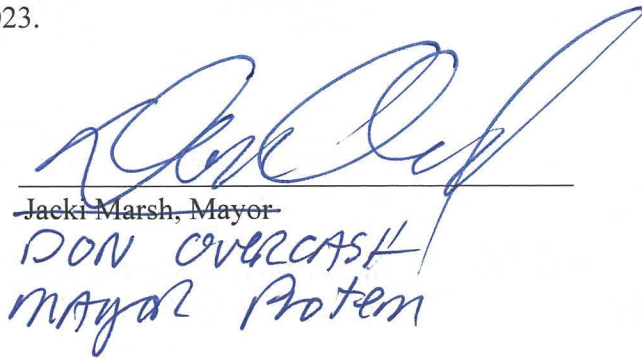 023.
Jacki Marsh, Mayor
DON OVERCASH
MAYOR Protem